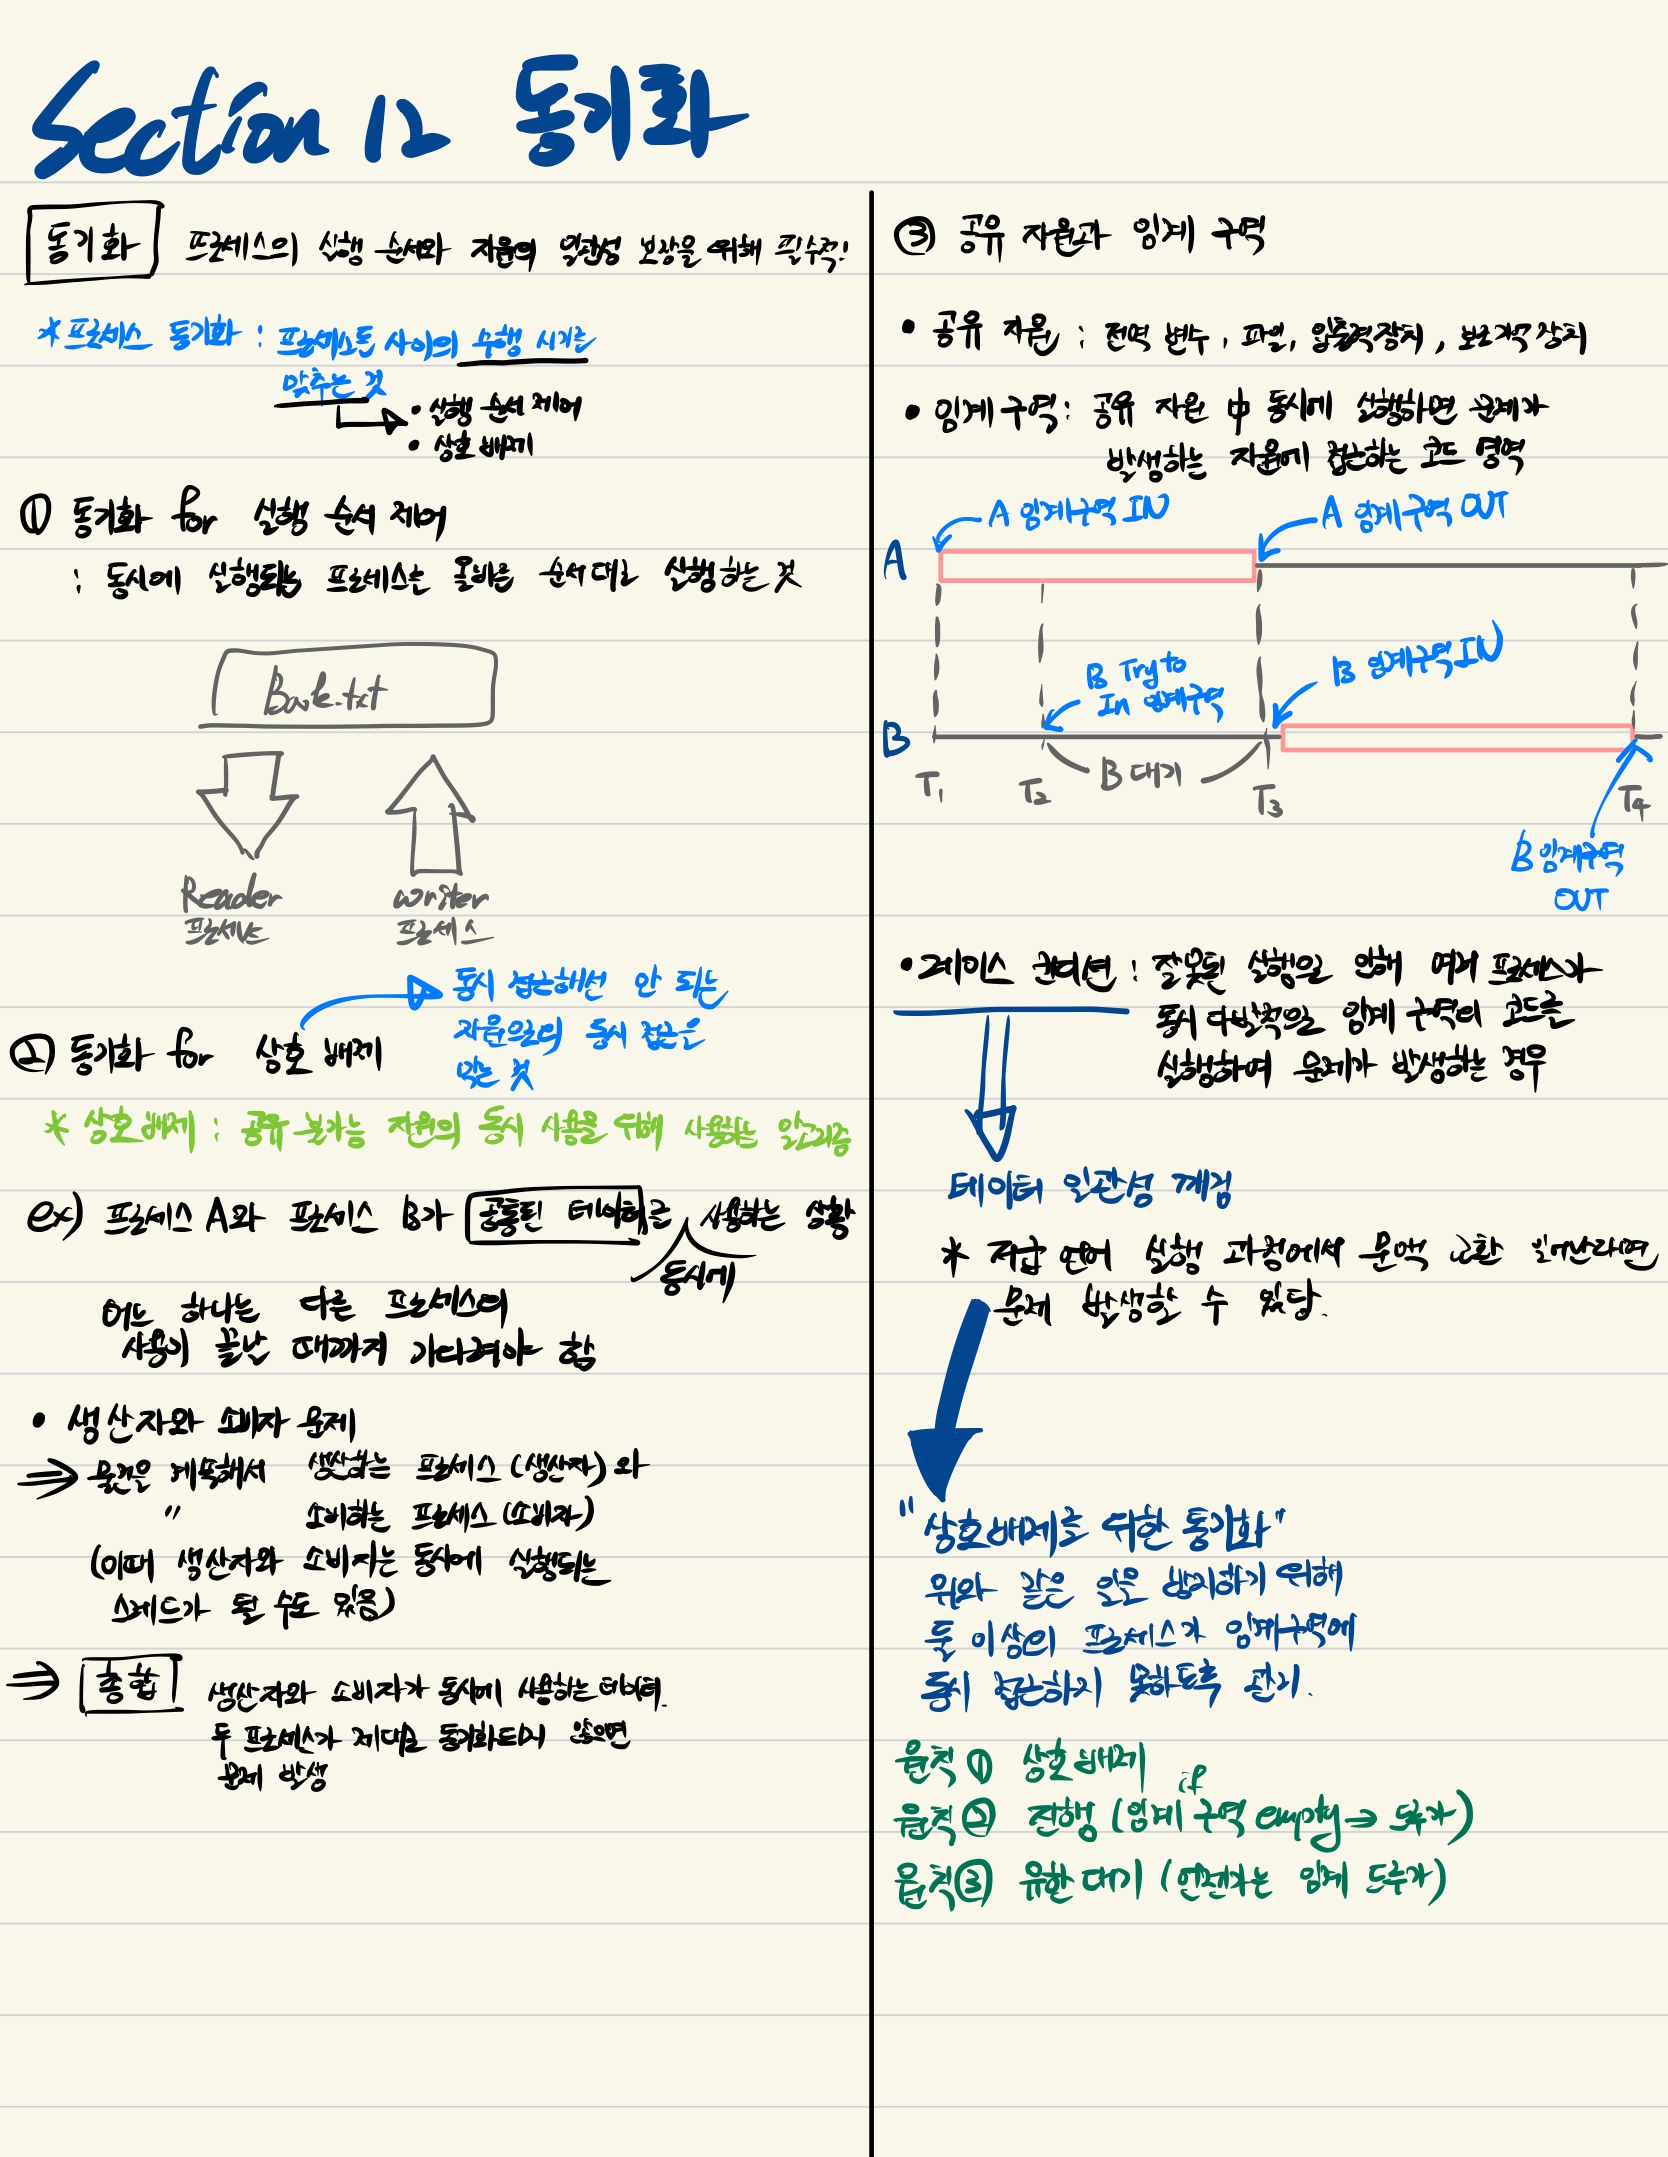 Section 12 동기화
동기화 프로세스의 실행 순서와 자원의 일관성 보장을 위해 필수적!
*프로세스 동기화 : 프로세스들 사이의 수행 시기를
맞추는 것
• 실행 순서 제어
• 상호 배제
① 동기화 for 실행 순서 제어
: 동시에 실행되는 프로세스는 올바른 순서대로 실행하는 것
Book.txt
Reader
프로세스
writer
프로세스
동시 접근해선 안 되는
자원으로의 동시 접근을
막는 것
② 동기화 for 상호 배제
* 상호배제 : 공유 불가능 자원의 동시 사용을 위해 사용하는 알고리즘
ex) 프로세스 A와 프로세스 B가 공통된 데이터를 사용하는 상황
동시에
어느 하나는 다른 프로세스의
사용이 끝난 때까지 기다려야 함
• 생산자와 소비자 문제
⇒ 물건을 계속해서 생산하는 프로세스 (생산자) 와
" 소비하는 프로세스 (소비자)
(이때 생산자와 소비자는 동시에 실행되는
스레드가 될 수도 있음)
⇒ 총합 생산자와 소비자가 동시에 사용하는 데이터.
두 프로세스가 제대로 동기화되지 않으면
문제 발생
③ 공유 자원과 임계 구역
• 공유 자원 : 전역 변수, 파일, 입출력장치, 보조기억장치
• 임계구역: 공유 자원 中 동시에 실행하면 문제가
발생하는 자원에 접근하는 코드 영역
A 임계구역 IN
A 임계구역 OUT
A
B Try to
In 임계구역
B 임계구역 IN
B
B 대기
T1 T2 T3 T4
B 임계구역
OUT
• 레이스 컨디션 : 잘못된 실행으로 인해 여러 프로세스가
동시 다발적으로 임계 구역의 코드를
실행하여 문제가 발생하는 경우
데이터 일관성 깨짐
* 저급 언어 실행 과정에서 문맥 교환 일어난다면
문제 발생할 수 있당.
"상호배제를 위한 동기화"
위와 같은 일을 방지하기 위해
둘 이상의 프로세스가 임계구역에
동시 접근하지 못하도록 관리.
원칙 ① 상호 배제
if
원칙 ② 진행 (임계 구역 empty → 드루가)
원칙 ③ 유한 대기 (언젠가는 임계 드루가)